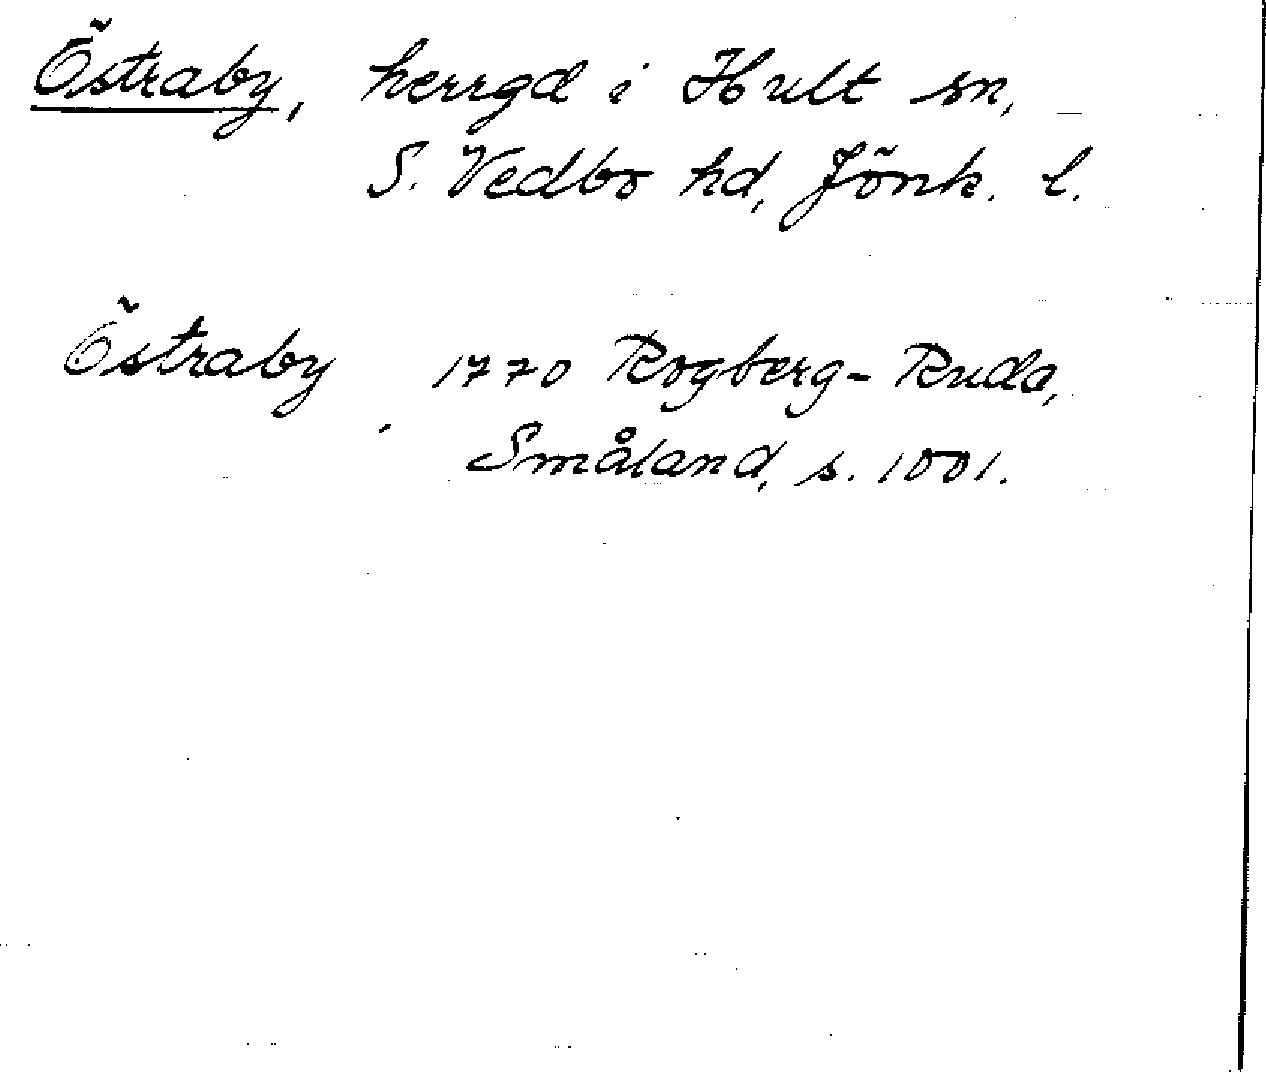 Östraby, herrgd i Hult sn,
S. Vedbo hd, Jönk. l.
Östraby 1770 Rogberg-Ruda,
Småland, s. 1001.